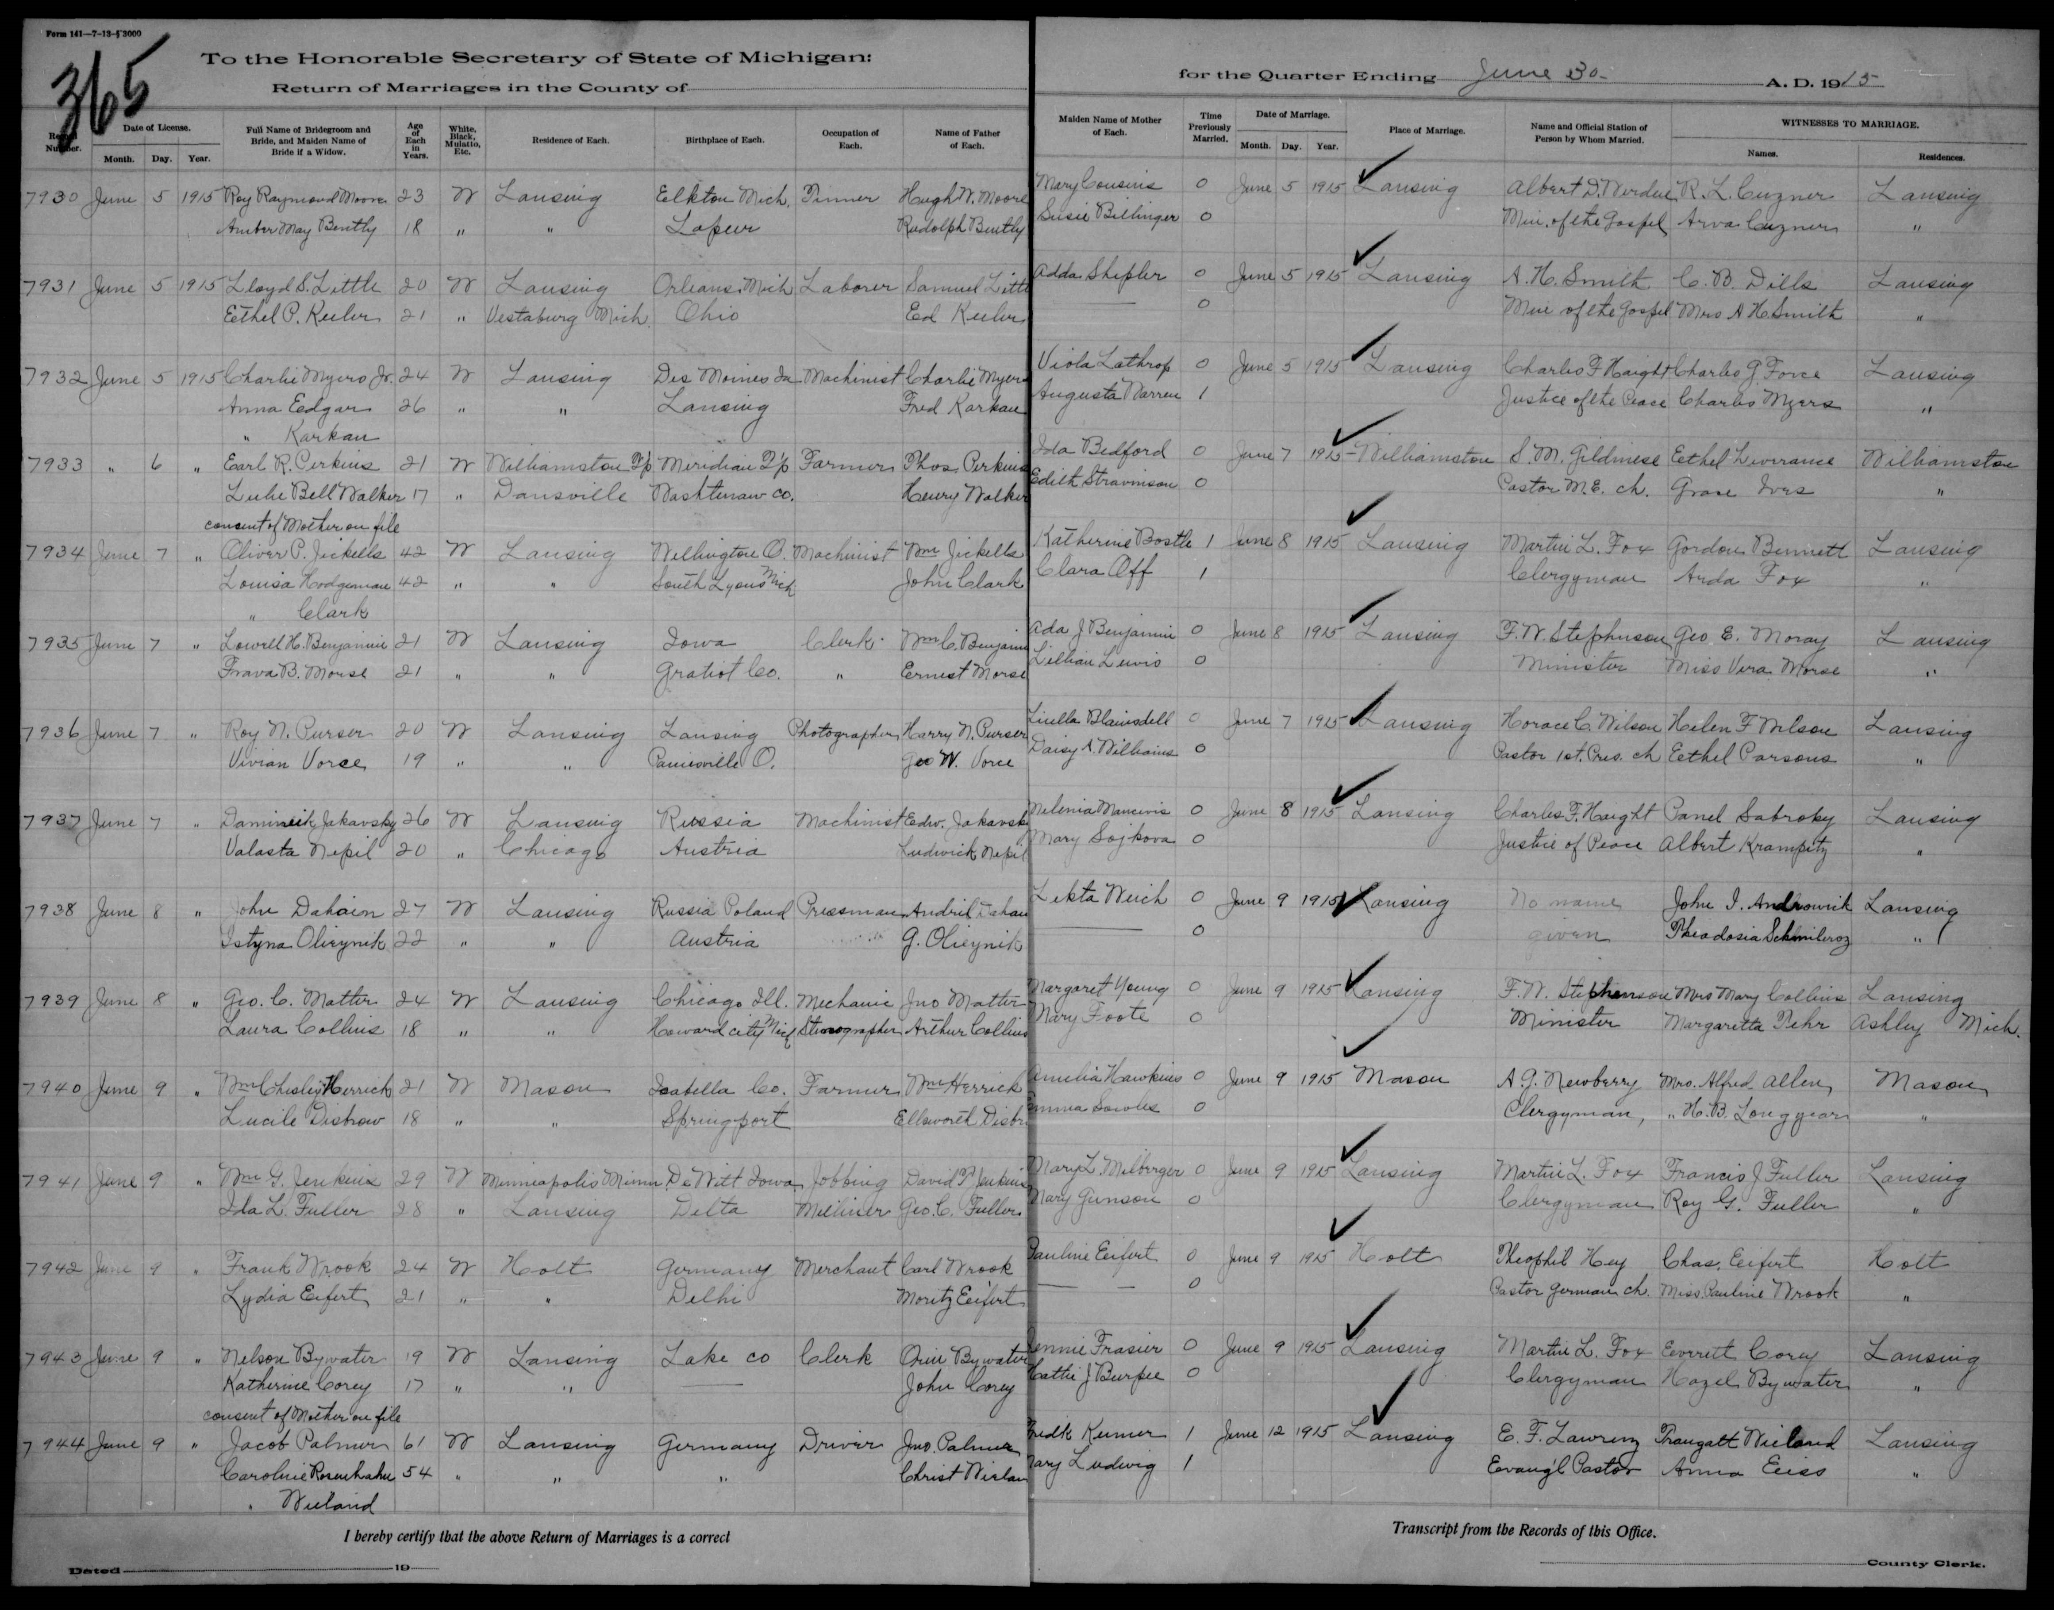 Form 141—7-13-13000
365
To the Honorable Secretary of State of Michigan:
Return of Marriages in the County of
for the Quarter Ending June 30- A. D. 1915
Record Number. Date of License. Month. Day. Year. Full Name of Bridegroom and Bride, and Maiden Name of Bride if a Widow. Age of Each in Years. White, Black, Mulatto, Etc. Residence of Each. Birthplace of Each. Occupation of Each. Name of Father of Each. Maiden Name of Mother of Each. Time Previously Married. Date of Marriage. Month. Day. Year. Place of Marriage. Name and Official Station of Person by Whom Married. WITNESSES TO MARRIAGE. Names. Residences.
7930 June 5 1915 Roy Raymond Moore 23 W Lansing Elkton Mich. Tinner Hugh W. Moore Mary Cousins 0 June 5 1915 Lansing Albert D. Werdue R. L. Cuzner Lansing
Amber May Bently 18 " " Lapeer Rudolph Bently Susie Billinger 0 Min. of the Gospel Arva Cuzner "
7931 June 5 1915 Lloyd S. Little 20 W Lansing Orleans Mich Laborer Samuel Little Adda Shipler 0 June 5 1915 Lansing A. H. Smith C. B. Dills Lansing
Eethel P. Keeler 21 " Vestaburg Mich. Ohio Ed Keeler — 0 Min of the Gospel Mrs A H. Smith "
7932 June 5 1915 Charlie Myers Jr. 24 W Lansing Des Moines Ia Machinist Charlie Myers Viola Lathrop 0 June 5 1915 Lansing Charles F Haight Charles G. Force Lansing
Anna Edgar 26 " " Lansing Fred Karkau Augusta Warren 1 Justice of the Peace Charles Myers "
" Karkau
7933 " 6 " Earl R. Perkins 21 W Williamston T'p Meridian T'p Farmer Thos Perkins Ida Bedford 0 June 7 1915 Williamston S. M. Gildmese Eethel Liverance Williamston
Lulie Bell Walker 17 " Dansville Washtenaw co. Henry Walker Edith Stravinson 0 Pastor M. E. ch. Grace Ives "
consent of Mother on file
7934 June 7 " Oliver P. Jickells 42 W Lansing Wellington O. Machinist Wm Jickells Katherine Bostle 1 June 8 1915 Lansing Martin L. Fox Gordon Bennett Lansing
Louisa Hodgeman 42 " " South Lyons Mich John Clark Clara Off 1 Clergyman Arda Fox "
" Clark
7935 June 7 " Lowell H. Benjamin 21 W Lansing Iowa Clerk Wm C. Benjamin Ada J Benjamin 0 June 8 1915 Lansing F. W. Stephnson Geo. E. Moray Lansing
Frava B. Morse 21 " " Gratiot Co. " Ernest Morse Lillian Lewis 0 Minister Miss Vera Morse "
7936 June 7 " Roy N. Purser 20 W Lansing Lansing Photographer Harry N. Purser Luella Blainsdell 0 June 7 1915 Lansing Horace C. Wilson Helen F Wilson Lansing
Vivian Vorce 19 " " Painesville O. Geo W. Vorce Daisy A. Williams 0 Pastor 1st. Pres. ch Eethel Parsons "
7937 June 7 " Daminick Jakavsky 26 W Lansing Russia Machinist Edw. Jakavsk Melenia Mancivis 0 June 8 1915 Lansing Charles F. Haight Panel Sabrosky Lansing
Valasta Nepil 20 " Chicago Austria Ludwick Nepil Mary Sojkova 0 Justice of Peace Albert Krampitz "
7938 June 8 " John Dahain 27 W Lansing Russia Poland Pressman Andril Dahan Lekta Weich 0 June 9 1915 Lansing No name John I. Androwick Lansing
Istyna Olieynik 22 " " Austria G. Olieynik — 0 given Theodosia Schmileroz "
7939 June 8 " Geo. C. Matter 24 W Lansing Chicago Ill. Mechanic Jno Matter Margaret Young 0 June 9 1915 Lansing F. W. Stephenson Mrs Mary Collins Lansing
Laura Collins 18 " " Howard City Mich Stenographer Arthur Collins Mary Foote 0 Minister Margaretta Fehr Ashley Mich.
7940 June 9 " Wm Chisley Herrick 21 W Mason Isabella Co. Farmer Wm Herrick Amelia Hawkins 0 June 9 1915 Mason A. G. Newberry Mrs. Alfred Allen Mason
Lucile Disbrow 18 " " Springport Ellsworth Disbr Emma Sowles 0 Clergyman, " H. B. Longyear "
7941 June 9 " Wm G. Jenkins 29 W Minneapolis Minn. De Witt Iowa Jobbing David P. Jenkins Mary L. Milberger 0 June 9 1915 Lansing Martin L. Fox Francis J Fuller Lansing
Ida L. Fuller 28 " Lansing Delta Milliner Geo. C. Fuller Mary Gunson 0 Clergyman Roy G. Fuller "
7942 June 9 " Frank Wrook 24 W Holt Germany Merchant Carl Wrook Pauline Eifert 0 June 9 1915 Holt Theophil Hey Chas. Eifert Holt
Lydia Eifert 21 " " Delhi Moritz Eifert — — 0 Pastor German ch. Miss Pauline Wrook "
7943 June 9 " Nelson Bywater 19 W Lansing Lake co Clerk Orin Bywater Jennie Frasier 0 June 9 1915 Lansing Martin L. Fox Everett Corey Lansing
Katherine Corey 17 " " — John Corey Hattie J Burpee 0 Clergyman Hazel Bywater "
consent of Mother on file
7944 June 9 " Jacob Palmer 61 W Lansing Germany Driver Jno. Palmer Fredk Kemer 1 June 12 1915 Lansing E. F. Lawrenz Traugatt Wieland Lansing
Caroline Rosenhahn 54 " " " Christ Wielan Mary Ludwig 1 Evang'l Pastor Anna Eeiss "
" Wieland
I hereby certify that the above Return of Marriages is a correct Transcript from the Records of this Office.
Dated 19 County Clerk.